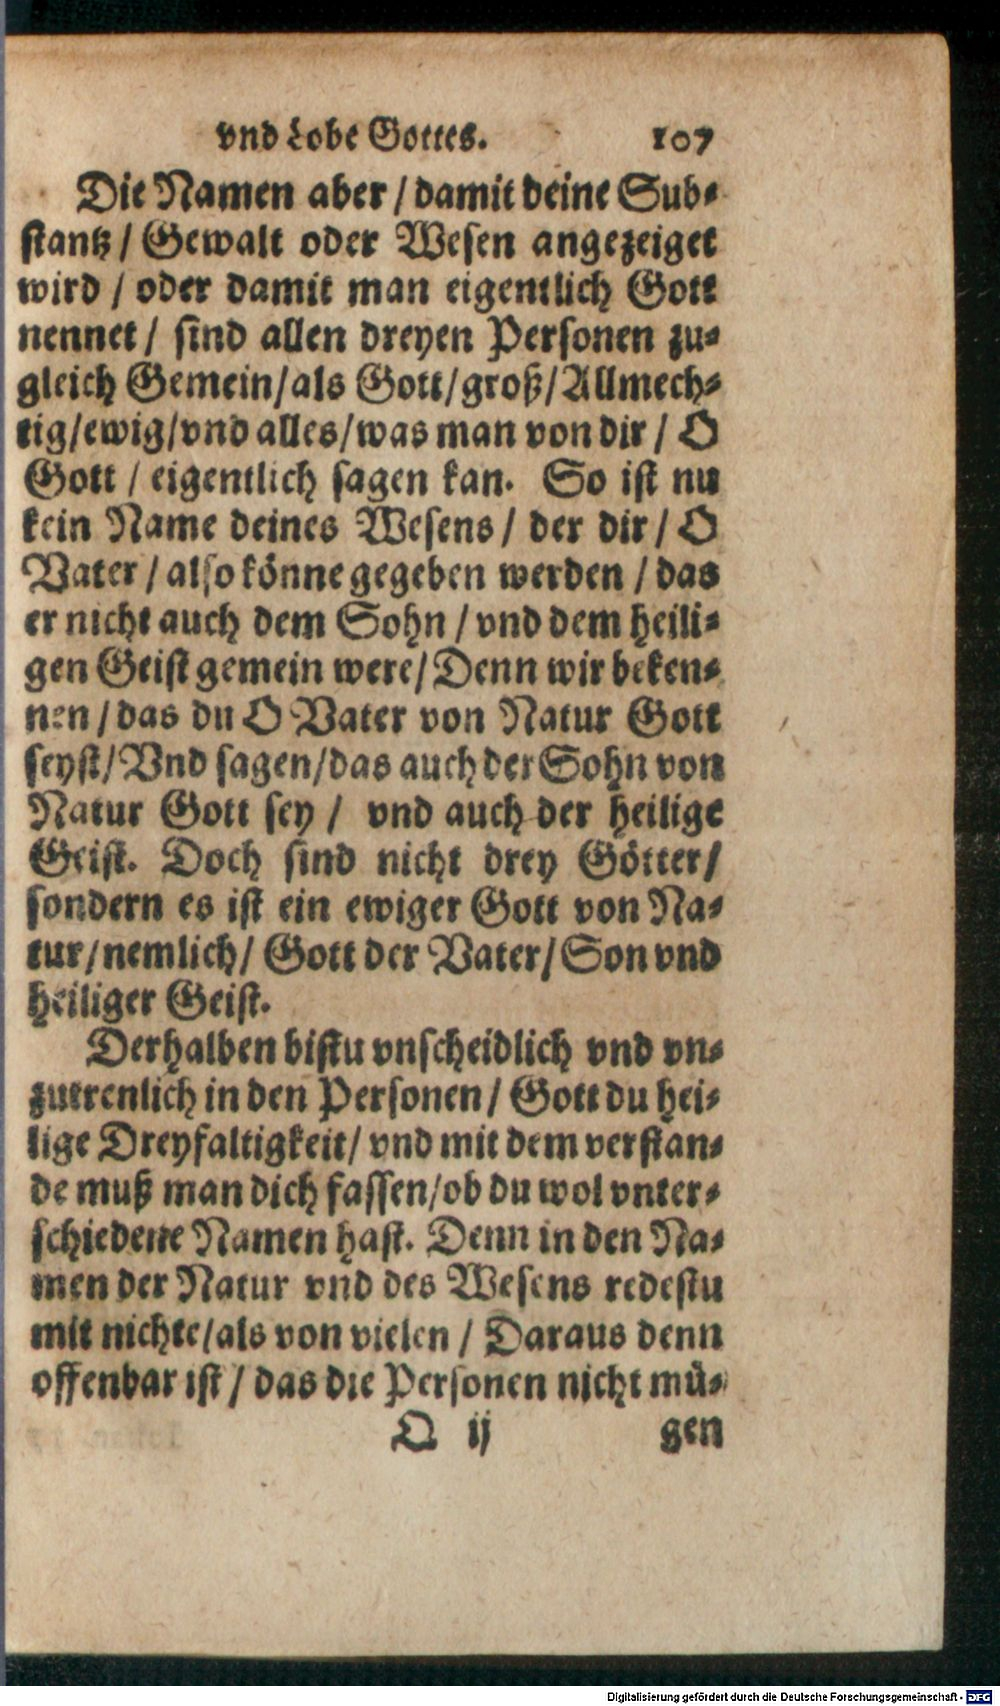 vnd Lobe Gottes. 107
Die Namen aber / damit deine Sub-
stantz / Gewalt oder Wesen angezeiget
wird / oder damit man eigentlich Gott
nennet / sind allen dreyen Personen zu-
gleich Gemein/als Gott/groß/Allmech-
tig/ewig/vnd alles/was man von dir / O
Gott / eigentlich sagen kan. So ist nu
kein Name deines Wesens / der dir / O
Vater / also könne gegeben werden / das
er nicht auch dem Sohn / vnd dem heili-
gen Geist gemein were/ Denn wir beken-
nen / das du O Vater von Natur Gott
seyst/ Vnd sagen/das auch der Sohn von
Natur Gott sey / vnd auch der heilige
Geist. Doch sind nicht drey Götter/
sondern es ist ein ewiger Gott von Na-
tur/nemlich/ Gott der Vater/ Son vnd
heiliger Geist.
Derhalben bistu vnscheidlich vnd vn-
zutrenlich in den Personen / Gott du hei-
lige Dreyfaltigkeit/ vnd mit dem verstan-
de muß man dich fassen/ob du wol vnter-
schiedene Namen hast. Denn in den Na-
men der Natur vnd des Wesens redestu
mit nichte/als von vielen / Daraus denn
offenbar ist / das die Personen nicht mü-
O ij gen
Digitalisierung gefördert durch die Deutsche Forschungsgemeinschaft - DFG